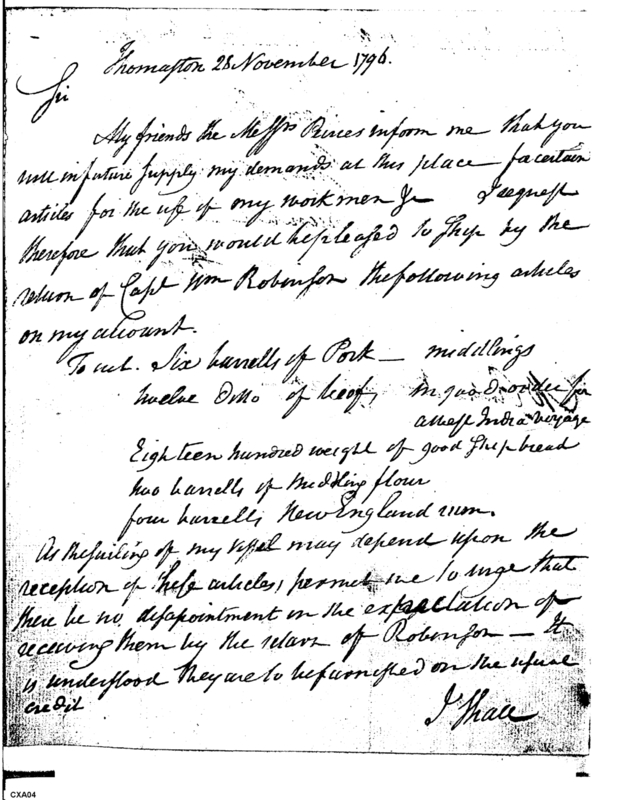 Thomaston 28 November 1796.
Sir
My friends the Messrs Pierces inform me that you
will in future supply my demands at this place for certain
articles for the use of my workmen &c I request
therefore that you would be pleased to ship by the
return of Capt Wm Robinson the following articles
on my account.
To wit. Six barrells of Pork — middlings
twelve Ditto of beef, in good order for
a West India voyage
Eighteen hundred weight of good ship bread
two barrells of middling flour
four barrells New England rum.
As the sailing of my vessel may depend upon the
reception of these articles, permit me to urge that
there be no disapointment in the expectation of
receiving them by the return of Robinson — It
is understood they are to be furnished on the usual
credit
I Shall
CXA04